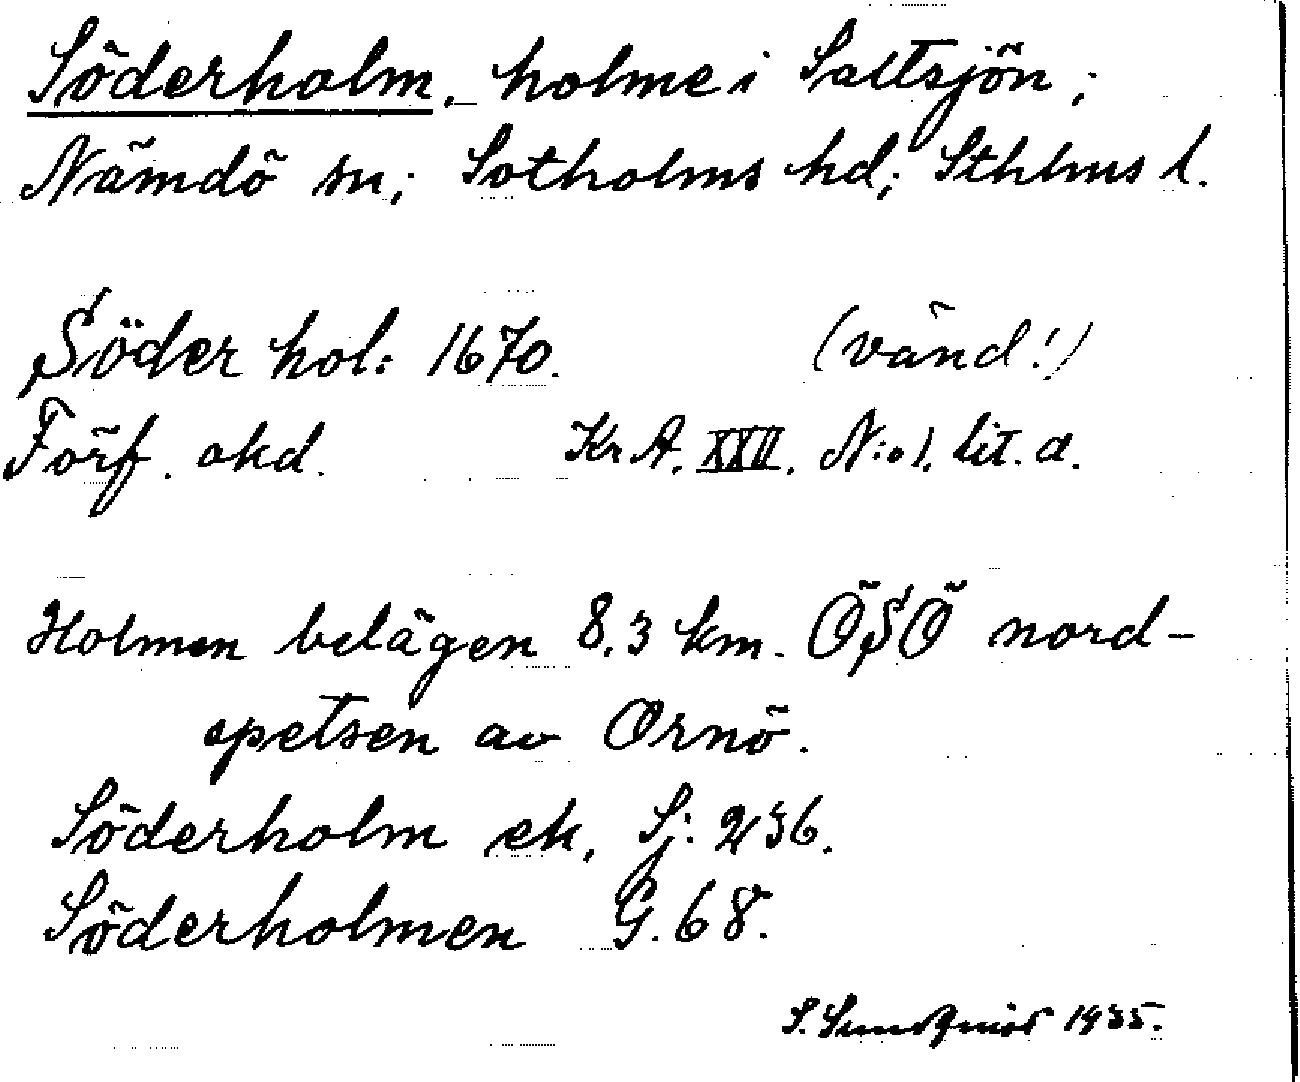 Söderholm, holme i Saltsjön;
Nämdö sn; Sotholms hd; Sthlms l.
Söder hol: 1670. (vänd!)
Förf. okd. Kr A. XXII. N:o 1. lit. a.
Holmen belägen 8,3 km. ÖSÖ nord-
spetsen av Ornö.
Söderholm ek, Sj: 236.
Söderholmen G. 68.
S. Sundqvist 1935.